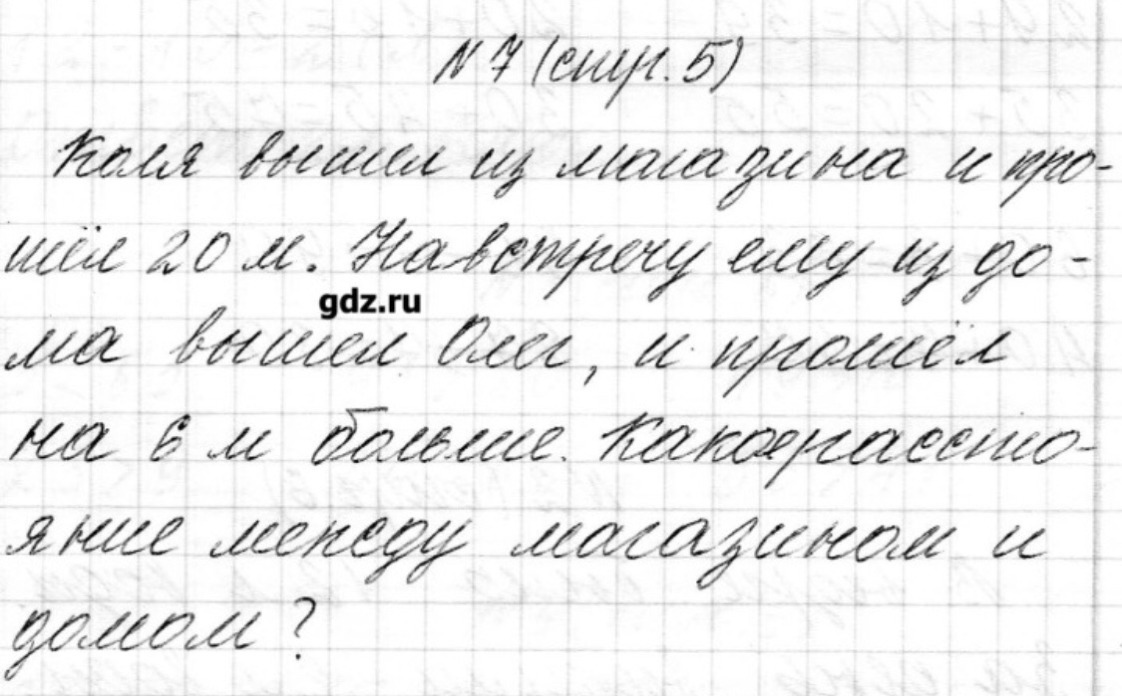 N 7 (стр. 5)
Коля вышел из магазина и про-
шёл 20 м. Навстречу ему из до-
gdz.ru
ма вышел Олег, и прошёл
на 6 м больше. Какое рассто-
яние между магазином и
домом?